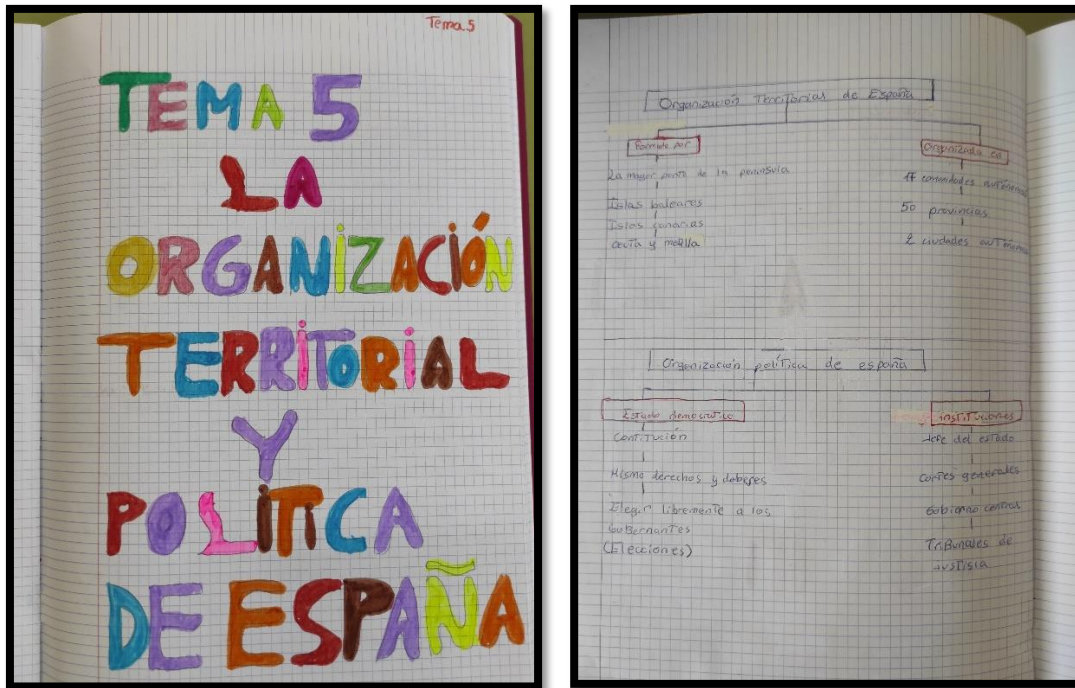 Tema 5
TEMA 5
LA
ORGANIZACIÓN
TERRITORIAL
Y
POLÍTICA
DE ESPAÑA
Organización Territorias de España
Formado por
La mayor parte de la península
Islas baleares
Islas canarias
ceuta y melilla
Organizada en
17 comunidades autónomas
50 provincias
2 ciudades autónomas
Organización política de españa
Estado democratico
Contitución
Mismo derechos y deberes
Elegir libremente a los
Gobernantes
(Elecciones)
instituciones
Jefe del estado
Cortes generales
Gobierno central
Tribunales de
Justisia